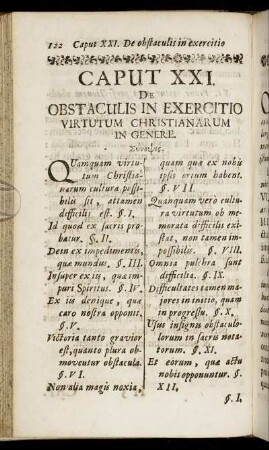 122 Caput XXI. De obstaculis in exercitio
CAPUT XXI.
De
OBSTACULIS IN EXERCITIO
VIRTUTUM CHRISTIANARUM
IN GENERE.
Σύνοψις.
QUamquam virtu-
tum Christia-
narum cultura possi-
bilis sit, attamen
difficilis est. §. I.
Id quod ex sacris pro-
batur. §. II.
Dein ex impedimentis,
quæ mundus. §. III.
Insuper ex iis, quæ im-
puri Spiritus. §. IV.
Ex iis denique, quæ
caro nostra opponit.
§. V.
Victoria tanto gravior
est, quanto plura ob-
moventur obstacula.
§. VI
Non alia magis noxia,
quam quæ ex nobis
ipsis ortum habent.
§. VII.
Quanquam vero cultu-
ra virtutum ob me-
morata difficilis exi-
stat, non tamen im-
possibilis. §. VIII.
Omnia pulchra sunt
difficilia. §. IX.
Difficultates tamen ma-
jores in initio, quam
in progressu. §. X.
Usus insignis obstaculo-
lorum in sacris nota-
torum. §. XI.
Et eorum, quæ actu
nobis opponuntur. §.
XII,
§. I.